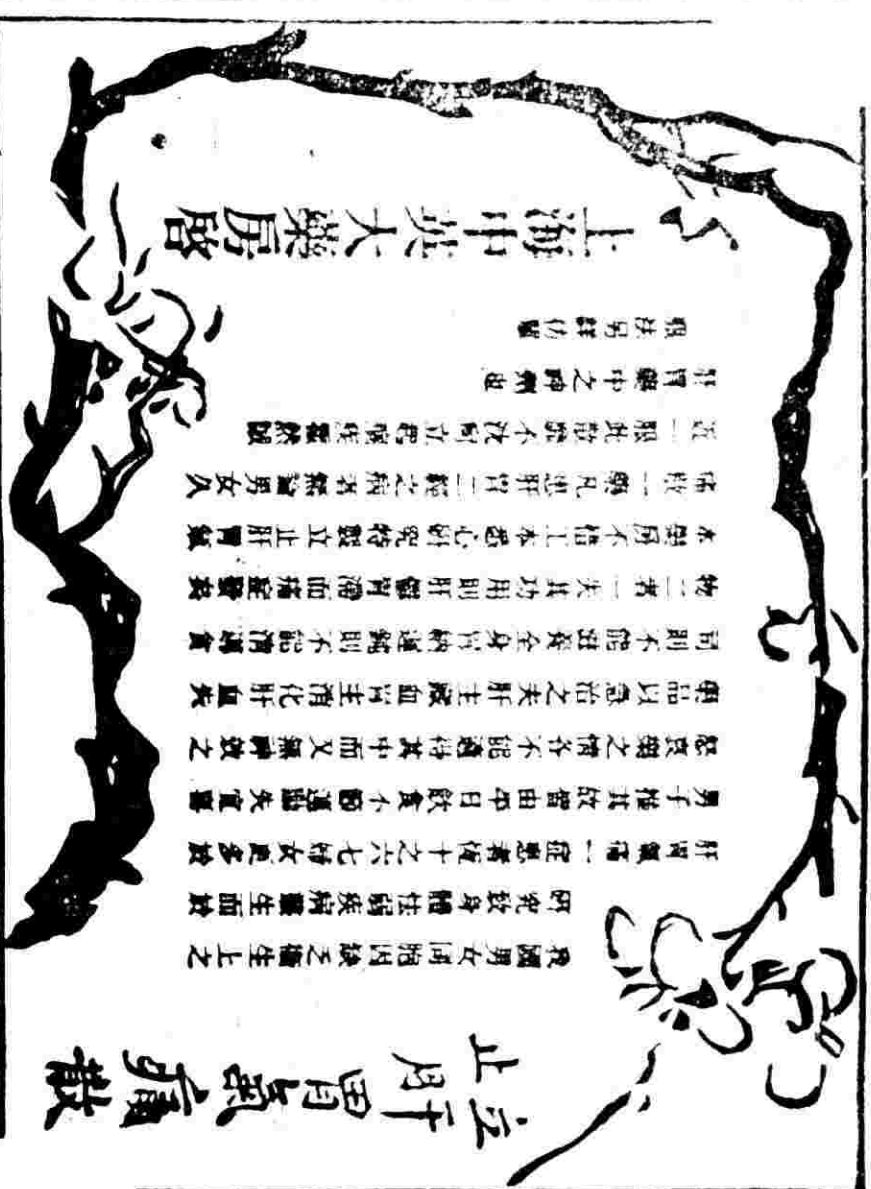 立止肝胃氣痛散
我國男女同胞因缺乏衛生上之
研究致身體怯弱疾病叢生而於
肝胃氣痛一症患者恆十之六七婦女更多於
男子推其故當由平日飲食不節運動失宜喜
怒哀樂之情各不能適得其中而又無神效之
藥品以急治之夫肝主藏血胃主消化肝血失
司則不能滋養全身胃納遲鈍則不能消食
物二者一失其功用則肝鬱胃滯而痛症發
本藥房不惜工本悉心研究特製立止肝胃氣
痛散一藥凡患肝胃二經之病者無論男女久
近一服此散無不沈疴立起霍然誠
肝胃藥中之神劑也
服法另詳仿單
上海中英大藥房啓